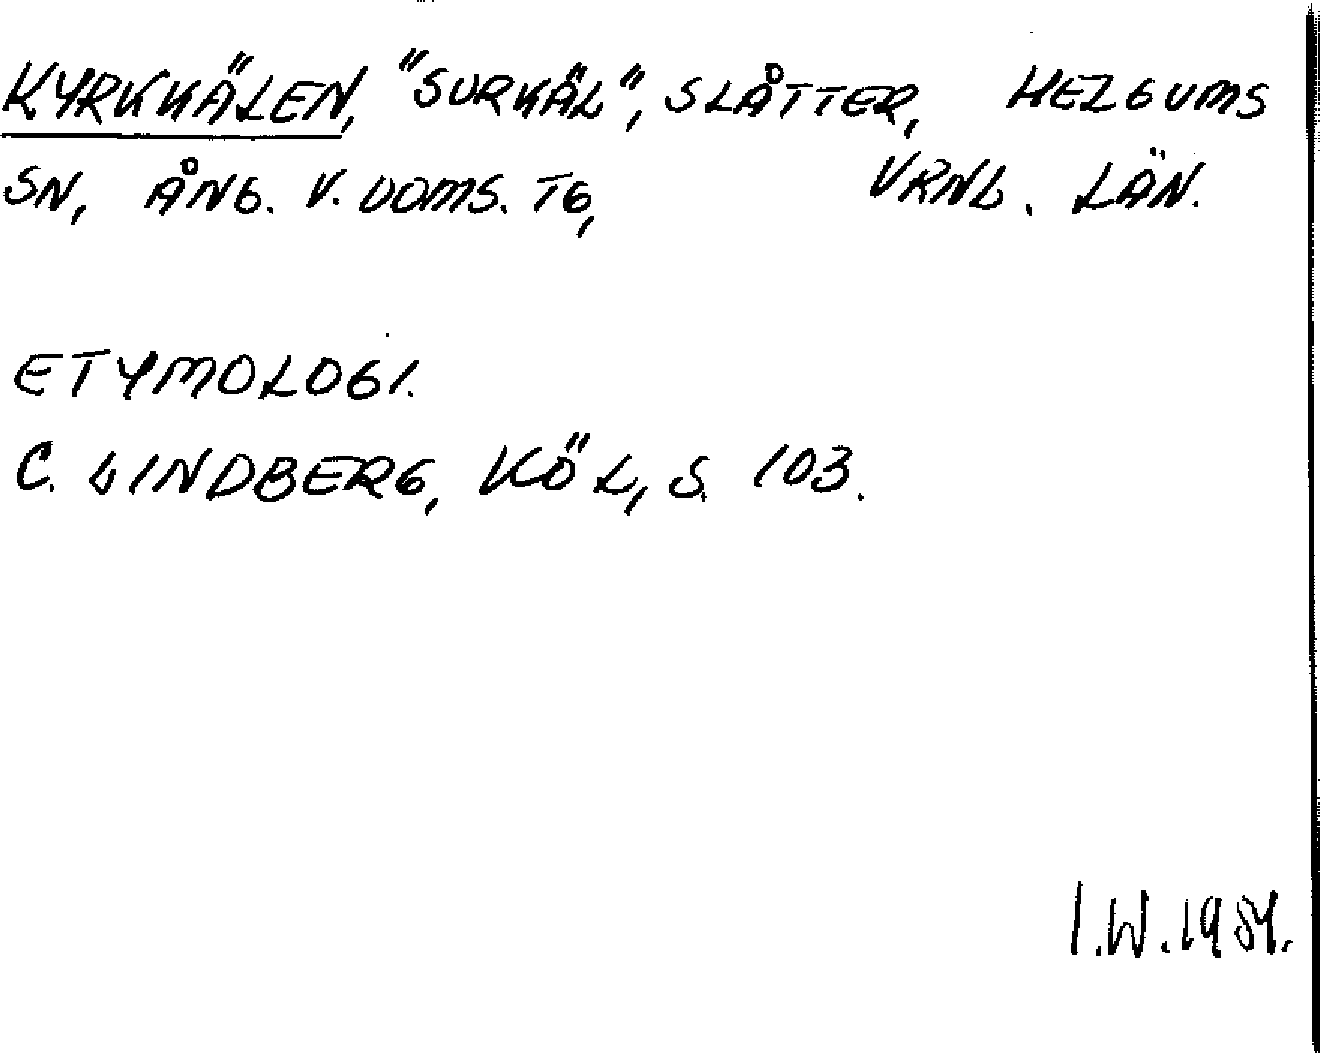 KYRKKÄLEN, "SURKÄL", SLÅTTER, HELGUMS
SN, ÅNG. V. DOMS. TG, VRNL. LÄN.
ETYMOLOGI.
C. LINDBERG, KÖL, S. 103.
I.W. 1984.